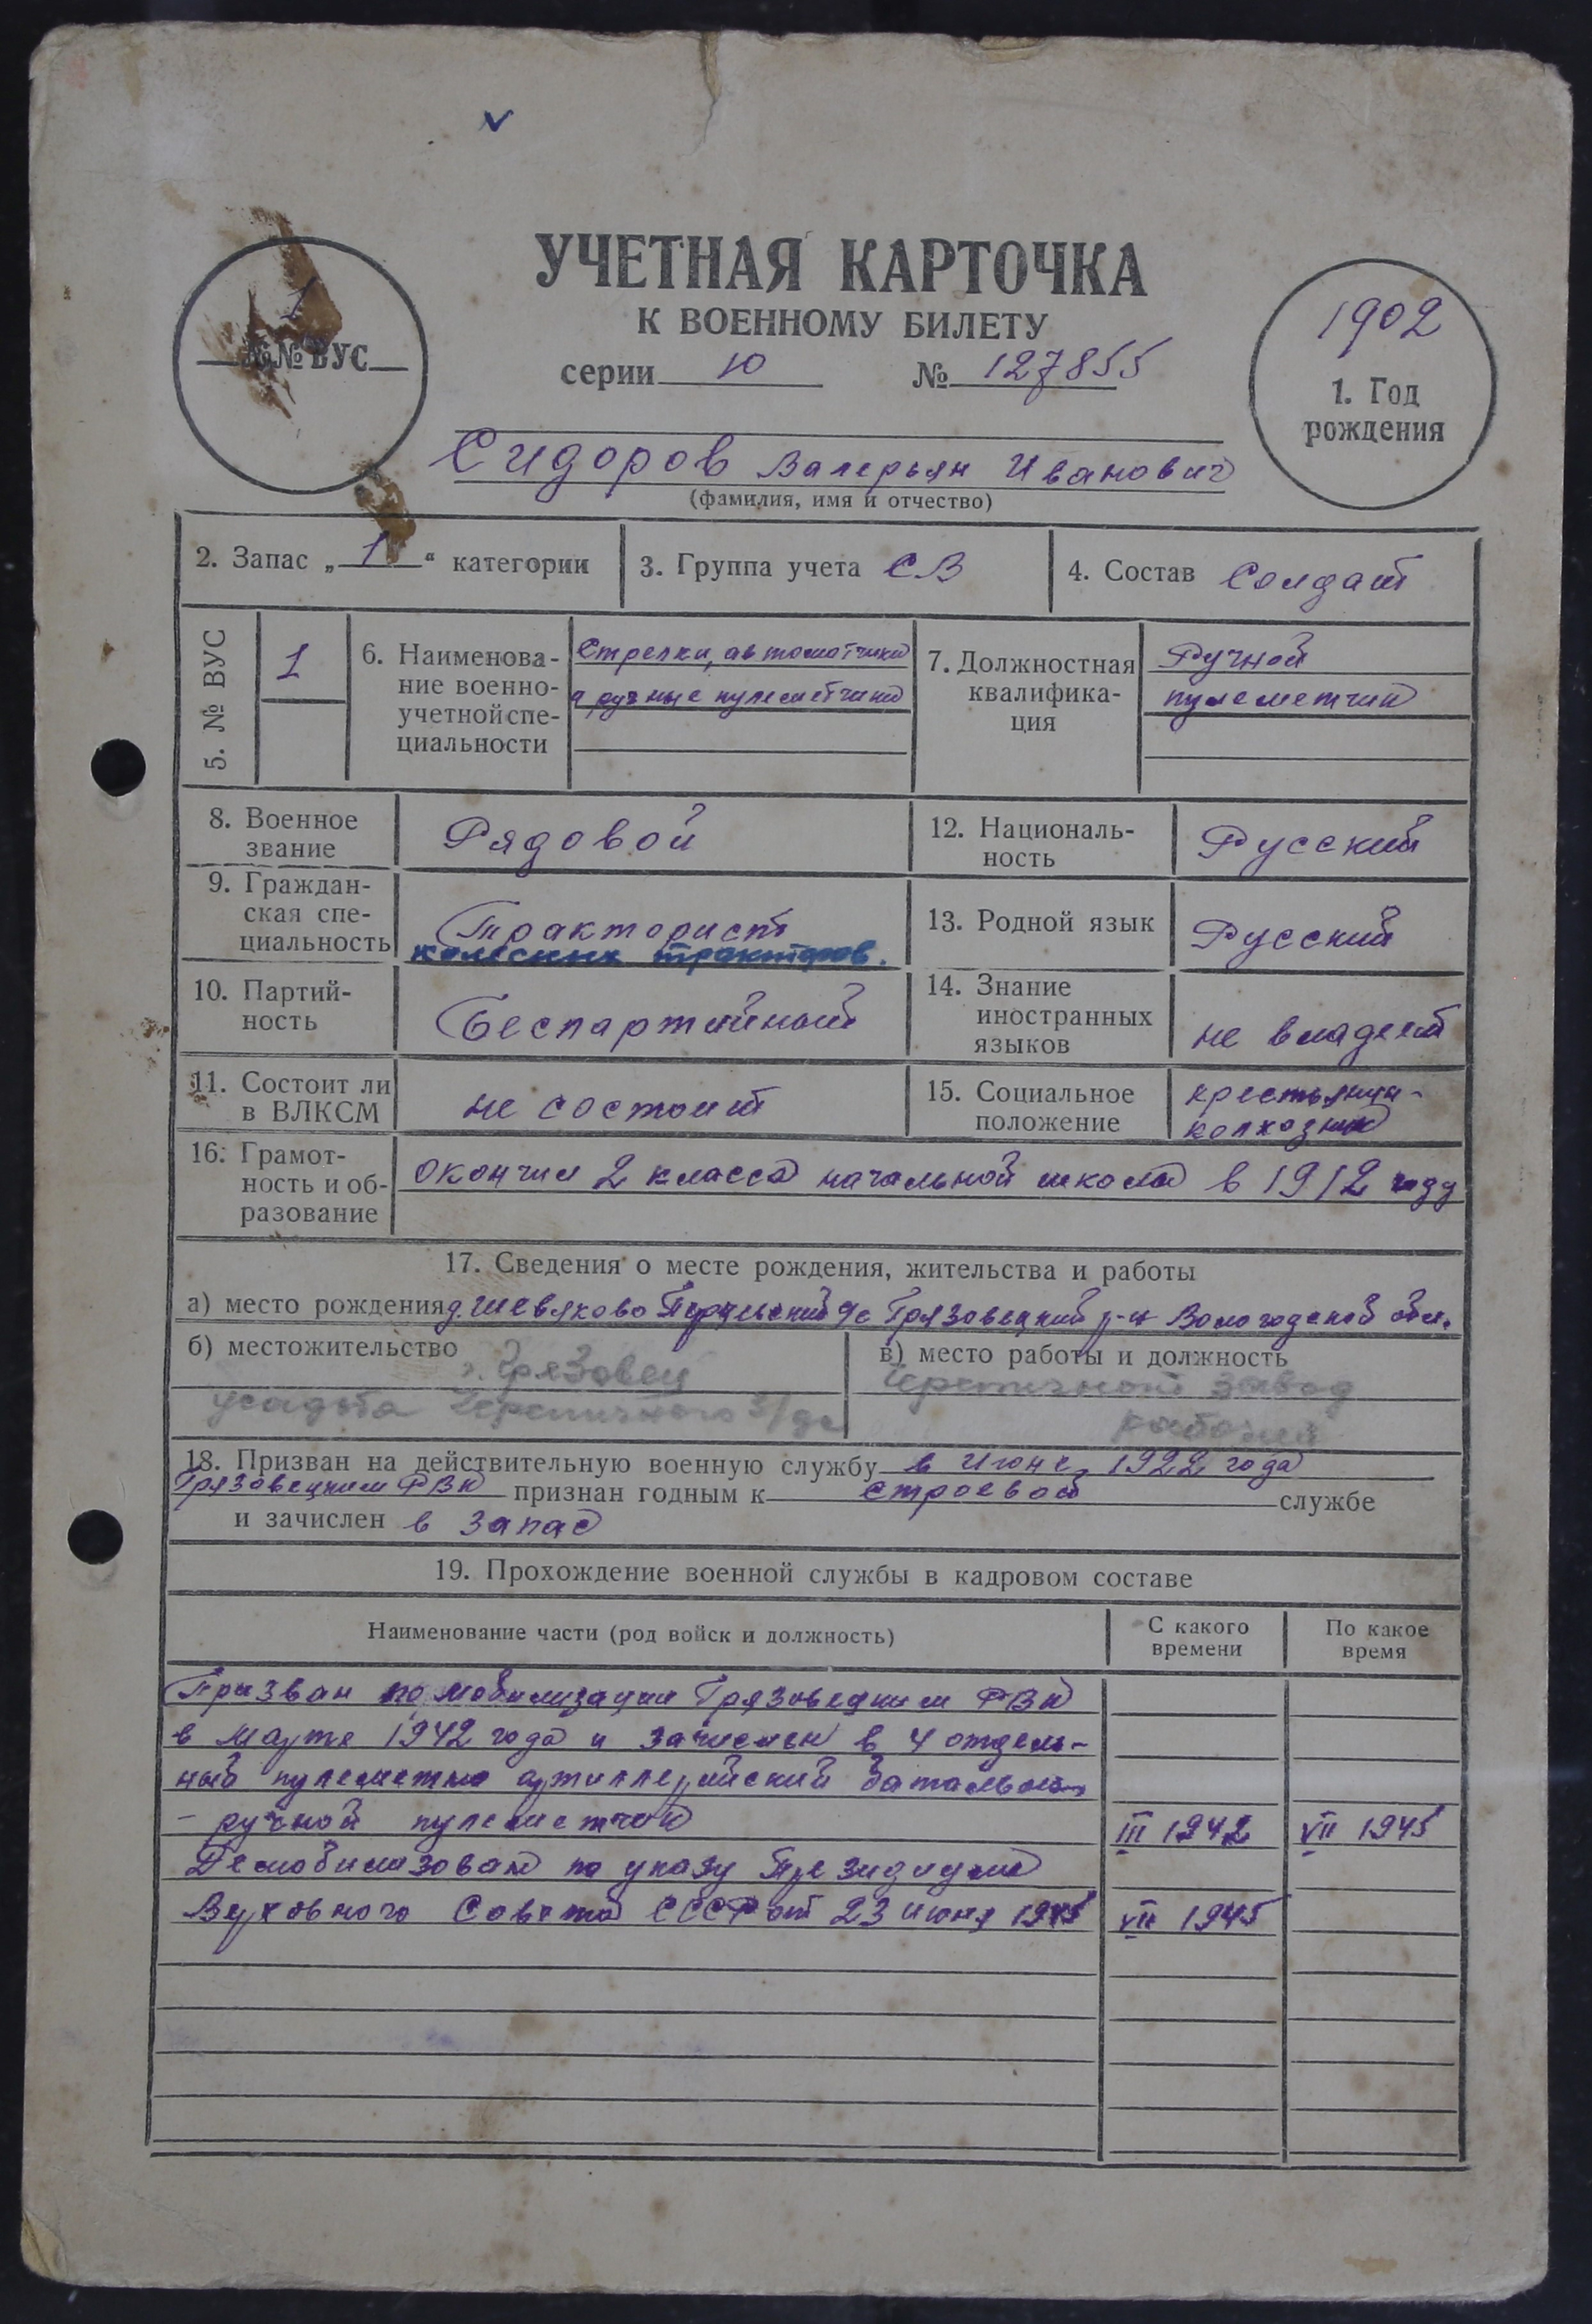 УЧЕТНАЯ КАРТОЧКА
К ВОЕННОМУ БИЛЕТУ
серии Ю № 127855
1
№№ ВУС
1902
1. Год
рождения
Сидоров Валерьян Иванович
(фамилия, имя и отчество)
2. Запас „ 1 “ категории
3. Группа учета СВ
4. Состав Солдат
5. № ВУС
1
6. Наименова-
ние военно-
учетной спе-
циальности
Стрелки, автоматчики
и ручные пулеметчики
7. Должностная
квалифика-
ция
Ручной
пулеметчик
8. Военное
звание
Рядовой
12. Националь-
ность
Русский
9. Граждан-
ская спе-
циальность
Тракторист
колесных тракторов.
13. Родной язык
Русский
10. Партий-
ность
Беспартийный
14. Знание
иностранных
языков
не владеет
11. Состоит ли
в ВЛКСМ
не состоит
15. Социальное
положение
крестьянин-
колхозник
16. Грамот-
ность и об-
разование
окончил 2 класса начальной школы в 1912 году
17. Сведения о месте рождения, жительства и работы
а) место рождения д. Шевяково с/с Грязовецкий р-н Вологодской обл.
б) местожительство
г. Грязовец
усадьба Черепичного з/да
в) место работы и должность
Черепичный завод
рабочий
18. Призван на действительную военную службу в Июне 1922 года
Грязовецким РВК признан годным к строевой службе
и зачислен в запас
19. Прохождение военной службы в кадровом составе
Наименование части (род войск и должность)
С какого
времени
По какое
время
Призван по мобилизации Грязовецким РВК
в Марте 1942 года и зачислен в 4 отдель-
ный пулеметно артиллерийский батальон
- ручной пулеметчик III 1942 VII 1945
Демобилизован по указу Президиума
Верховного Совета СССР от 23 июня 1945 VII 1945